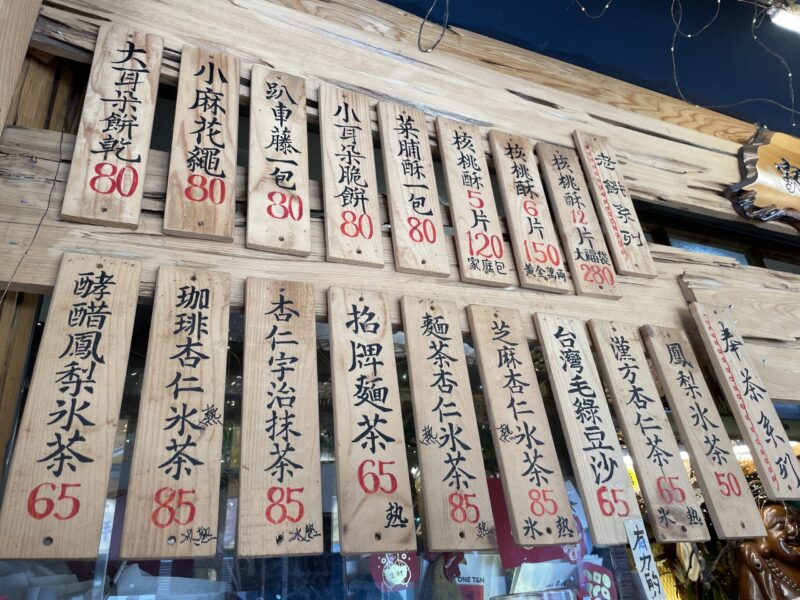 餅系列
核桃酥12片
大福袋
280
核桃酥6片
150
黃金萬兩
核桃酥5片
120
家庭包
菜脯酥一包
80
小耳朵脆餅
80
趴車藤一包
80
小麻花繩
80
大耳朵餅乾
80
奉茶系列
鳳梨冰茶
50
漢方杏仁茶
65
冰 熱
台灣毛綠豆沙
65
芝麻杏仁冰茶
熱
85
冰 熱
麵茶杏仁冰茶
熱
85
熱
招牌麵茶
65
熱
杏仁宇治抹茶
85
冰熱
珈琲杏仁冰茶
熱
85
冰熱
酵醋鳳梨冰茶
65
有力的